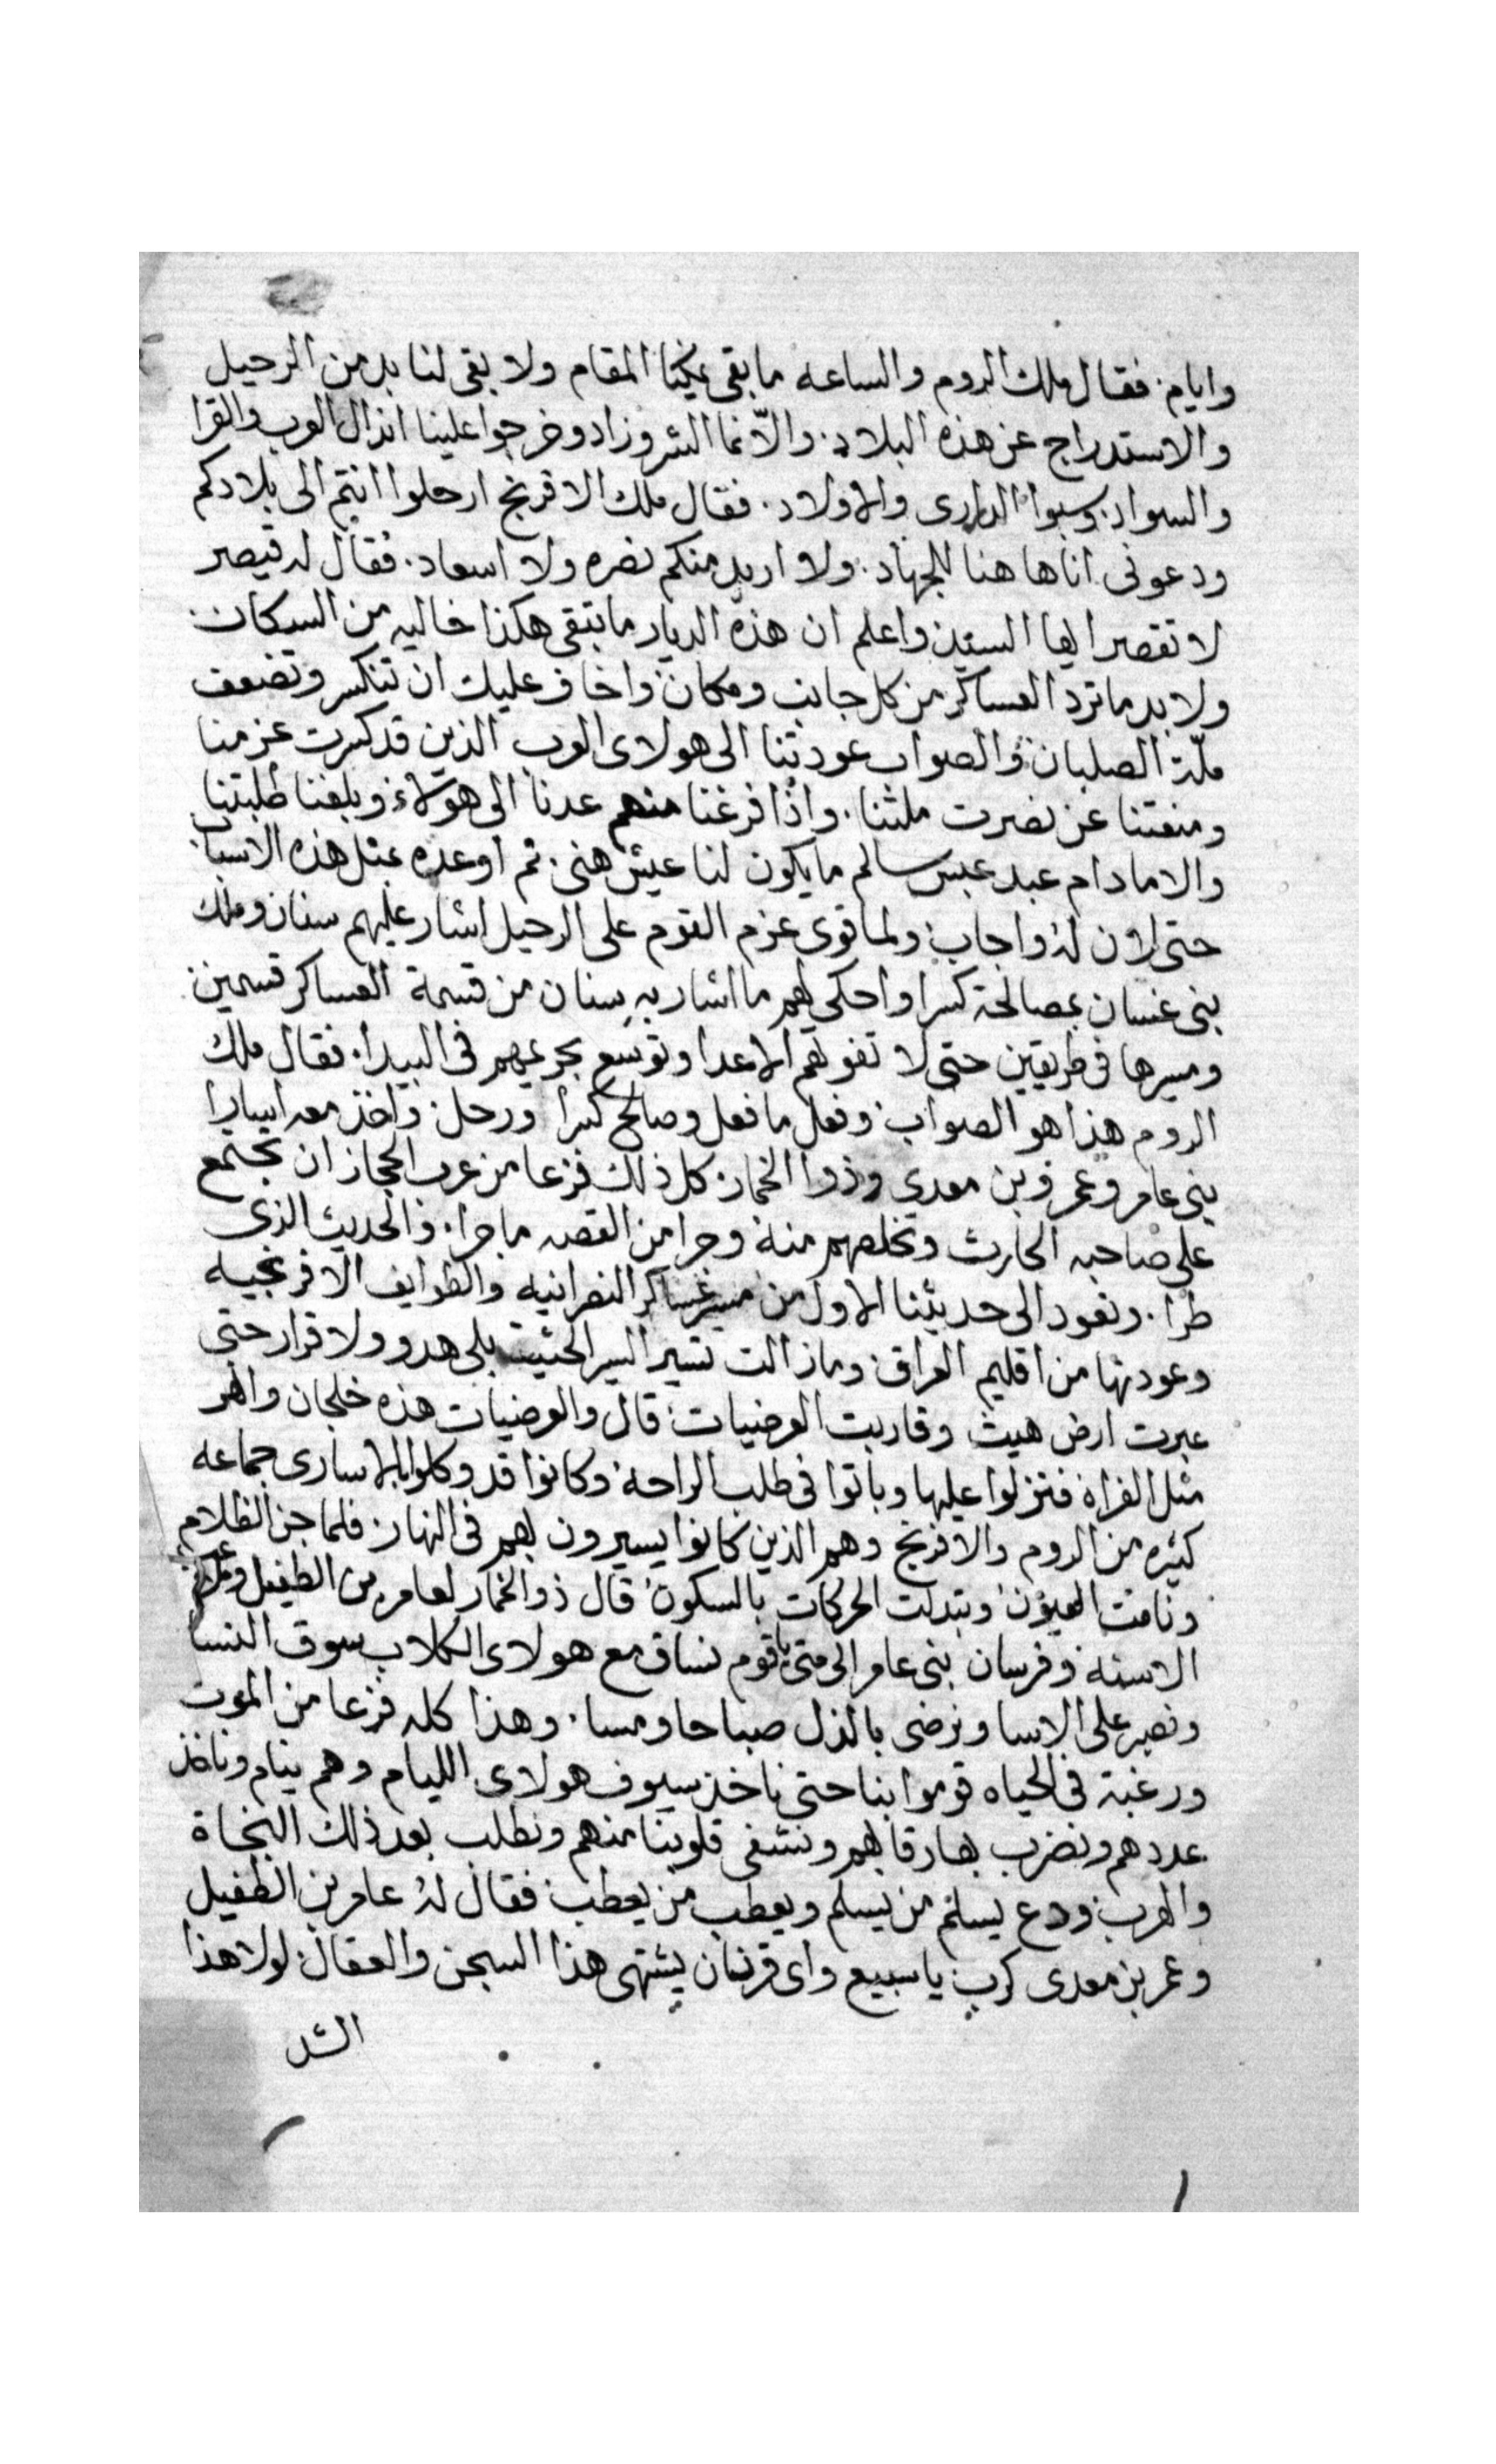 وايام. فقال ملك الروم والساعه ما بقى يمكننا المقام ولا بقى لنا بد من الرحيل
والاستدراج عن هذه البلاد. والّا نما الشر وزاد وخرجوا علينا اندال العرب والقرا
والسواد. وسبوا الدرارى والاولاد. فقال ملك الافرنج ارحلوا انتم الى بلادكم
ودعونى انا هاهنا للجهاد. ولا اريد منكم نصره ولا اسعاد. فقال له قيصر
لا تفعل ايها السيد واعلم ان هذه الديار ما تبقى هكذا خاليه من السكان.
ولا بد ما ترد العساكر من كل جانب ومكان. واخاف عليك ان تنكسر وتضعف
ملّة الصلبان. والصواب عودتنا الى هولاى العرب الذين قد كسرت عزمنا
ومنعتنا عن نصرت ملتنا. واذا فرغنا منهم عدنا الى هولاء وبلغنا طلبتنا
والا مادام عبد عبس سالم ما يكون لنا عيش هنى. ثم اوعده بمثل هذه الاسباب
حتى لان له واجاب. ولما قوى عزم القوم على الرحيل اشار عليهم سنان وملك
بنى غسان بمصالحة كسرا واحكى لهم ما اشار به سنان من قسمة العساكر قسمين.
ومسيرها فى طريقين حتى لا تفوتهم الاعدا وتوسع بجرعيهم فى البيدا. فقال ملك
الروم هذا هو الصواب. وفعل ما فعل وصالح كسرا ورحل. واخذ معه اسارا
بنى عامر وعمرو بن معدي وذوا الخمار. كل ذلك فزعا من عرب الحجاز ان تجتمع
على صاحبه الحارث وتخلصهم منه. وجرا من القصه ما جرا. والحديث الذى
طرا. ونعود الى حديثنا الاول من مسير عساكر النصرانيه والطوايف الافرنجيه
وعودتها من اقليم العراق. وما زالت تسير السير الحثيث بلى هدو ولا قرار حتى
عبرت ارض هيت وقاربت العرضيات. قال والعرضيات هذه خلجان وانهر
مثل الفراه فنزلوا عليها وباتوا فى طلب الراحة. وكانوا قد وكلوا بالاسارى جماعه
كثيره من الروم والافرنج وهم الذين كانوا يسيرون بهم فى النهار. فلما جن الظلام
ونامت العيون. وتبدلت الحركات بالسكون. قال ذو الخمار لعامر بن الطفيل
الاسنه وفرسان بنى عامر الى متى يا قوم نساق مع هولاى الكلاب سوق النسا
ونصبر على الاسا ونرضى بالذل صباحا ومسا. وهذا كله فزعا من الموت
ورغبة فى الحياه قوموا بنا حتى ناخذ سيوف هولاى الليام وهم نيام وناخذ
عددهم ونضرب بها رقابهم ونشفى قلوبنا منهم ونطلب بعد ذلك النجاة
والهرب. ودع يسلم من يسلم ويعطب من يعطب. فقال له عامر بن الطفيل
وعمر بن معدى كرب يا سبيع واى قرنان يشتهى هذا السجن والعقال. لولا هذا
الشد